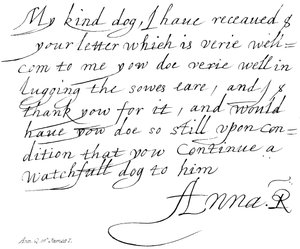 My kind dog, I haue receaued &
your letter which is verie well-
com to me yow doe verie well in
lugging the sowes eare, and I &
thank yow for it, and would
haue yow doe so still vpon con-
dition that yow continue a
watchfull dog to him
Anna. R
Ann Q. of James I.